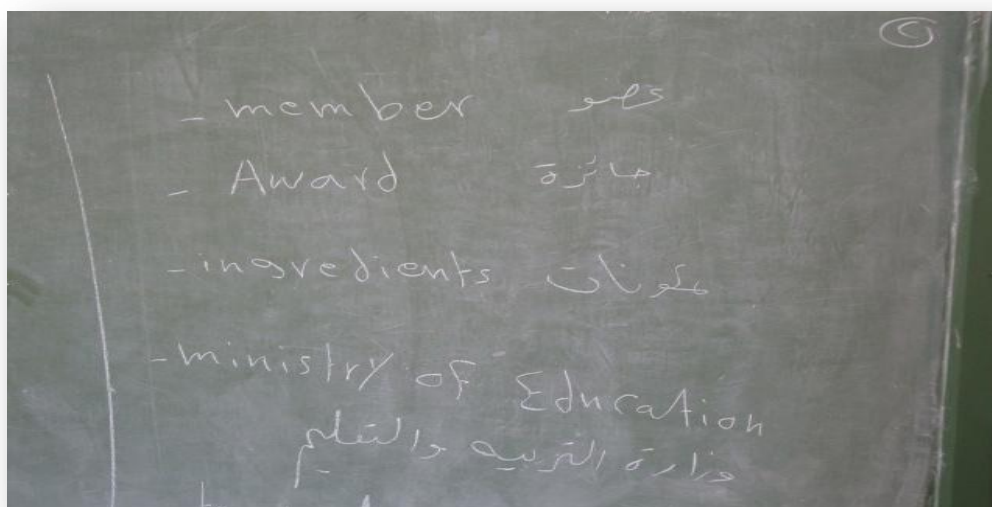 - member عضو
- Award جائزة
- ingredients مكونات
- ministry of Education
وزارة التربيه والتعليم